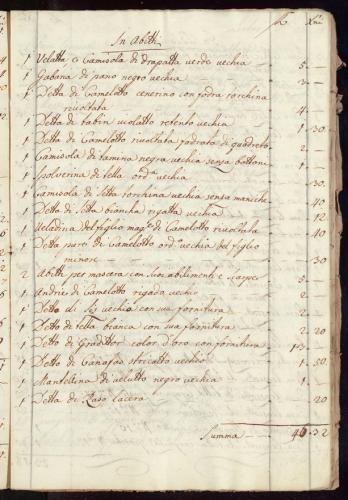 In Abiti
f. Xni
1 Velatta e Camisola di drapatta verde vechia — 5 —
1 Gabana di pano negro vechia — 3 —
1 Detta di Camelotto cenerino con fodra torchina
rivoltata — 4 —
1 Detta di tabin violatto retento vechia — 1 30
1 Detta di Camelotto rivoltata fodrata di quadreto 2
1 Camisola di tamina negra vechia senza bottoni 1
1 Spolverina di tella ord.ª vechia — 30
1 Camisola di Setta torchina vechia senza maniche 40
1 Detto di Setta biancha rigatta vechia — 12
1 Veladina del figlio mag.re di Camelotto rivoltata 40
1 Detta parte di Camelotto ord.ª vechia del figlio
minore — 30
2 Abiti per mascera con suoi abilimenti e scarpe 5
1 Andrie di Camelotto rigada vechio 2
1 Detto di vechia con sua fornitura 2
1 Detto di tella bianca con sua fornitura 2 20
1 Detto di color d'oro con fornitura 13
1 Detto di Canafas vechio 1 50
1 Mantellina di velutto negro vechia 1
1 Detta di Raso lacera — 20
Summa — 46 32